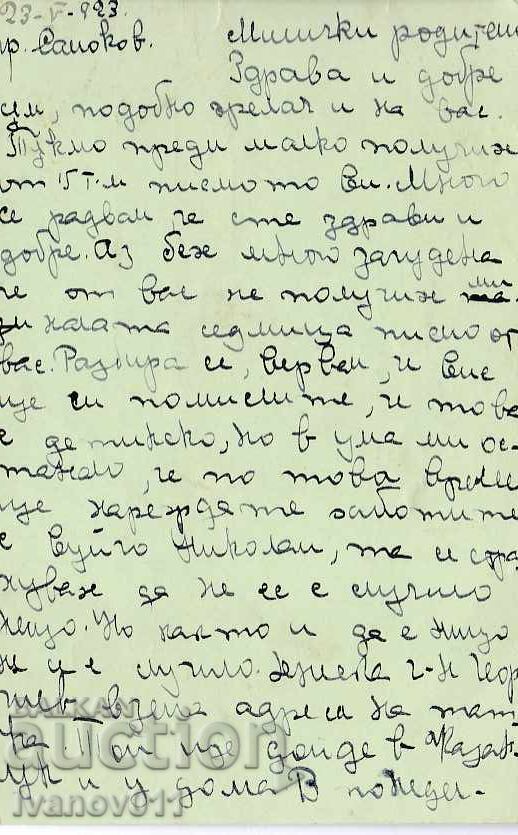 23-V-923
гр. Самоков. Милички родители
Здрава и добре
съм, подобно желая и на вас.
Тъкмо преди малко получих
от 15 т.м писмото ви. Много
се радвам че сте здрави и
добре. Аз бех много зачудена
че от вас не получих ми
налата седмица писмо от
вас. Разбира се, вервам, и вие
ще си помислите, и това
е детинско, но в ума ми ос-
танало, че по това време
ще нареждате работите
с вуйчо Николай, та и стра
хувах да не се е случило
нещо. Но както и да е нищо
не се е случило. г-н Геор
гиев взема адреса на тат
ка Той ще дойде в Казан
лък и у дома В понеде-
BALKAN
auction
ivanov911